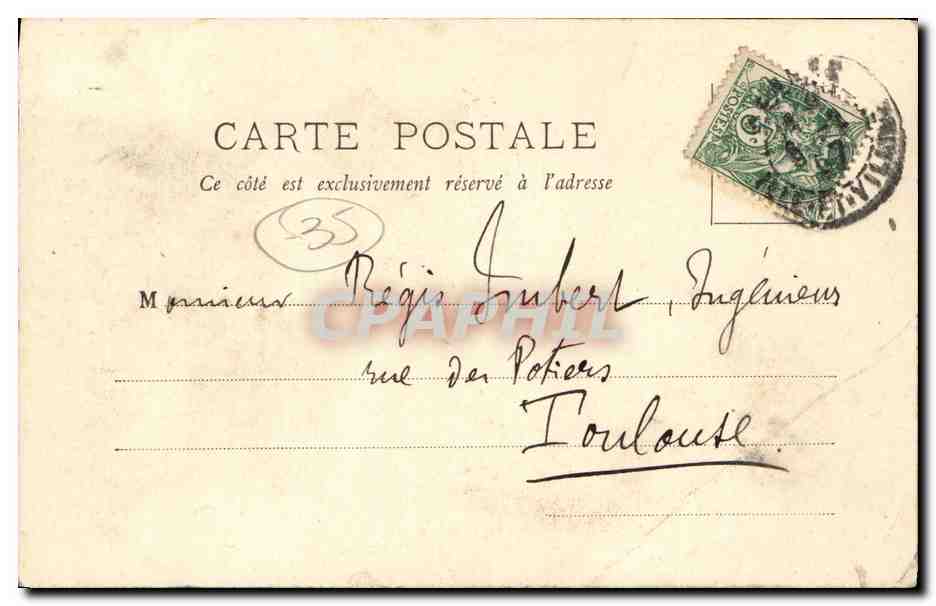 CARTE POSTALE
Ce côté est exclusivement réservé à l'adresse
35
Monsieur Régis Imbert, Ingénieur
CPAPHIL
rue des Potiers
Toulouse